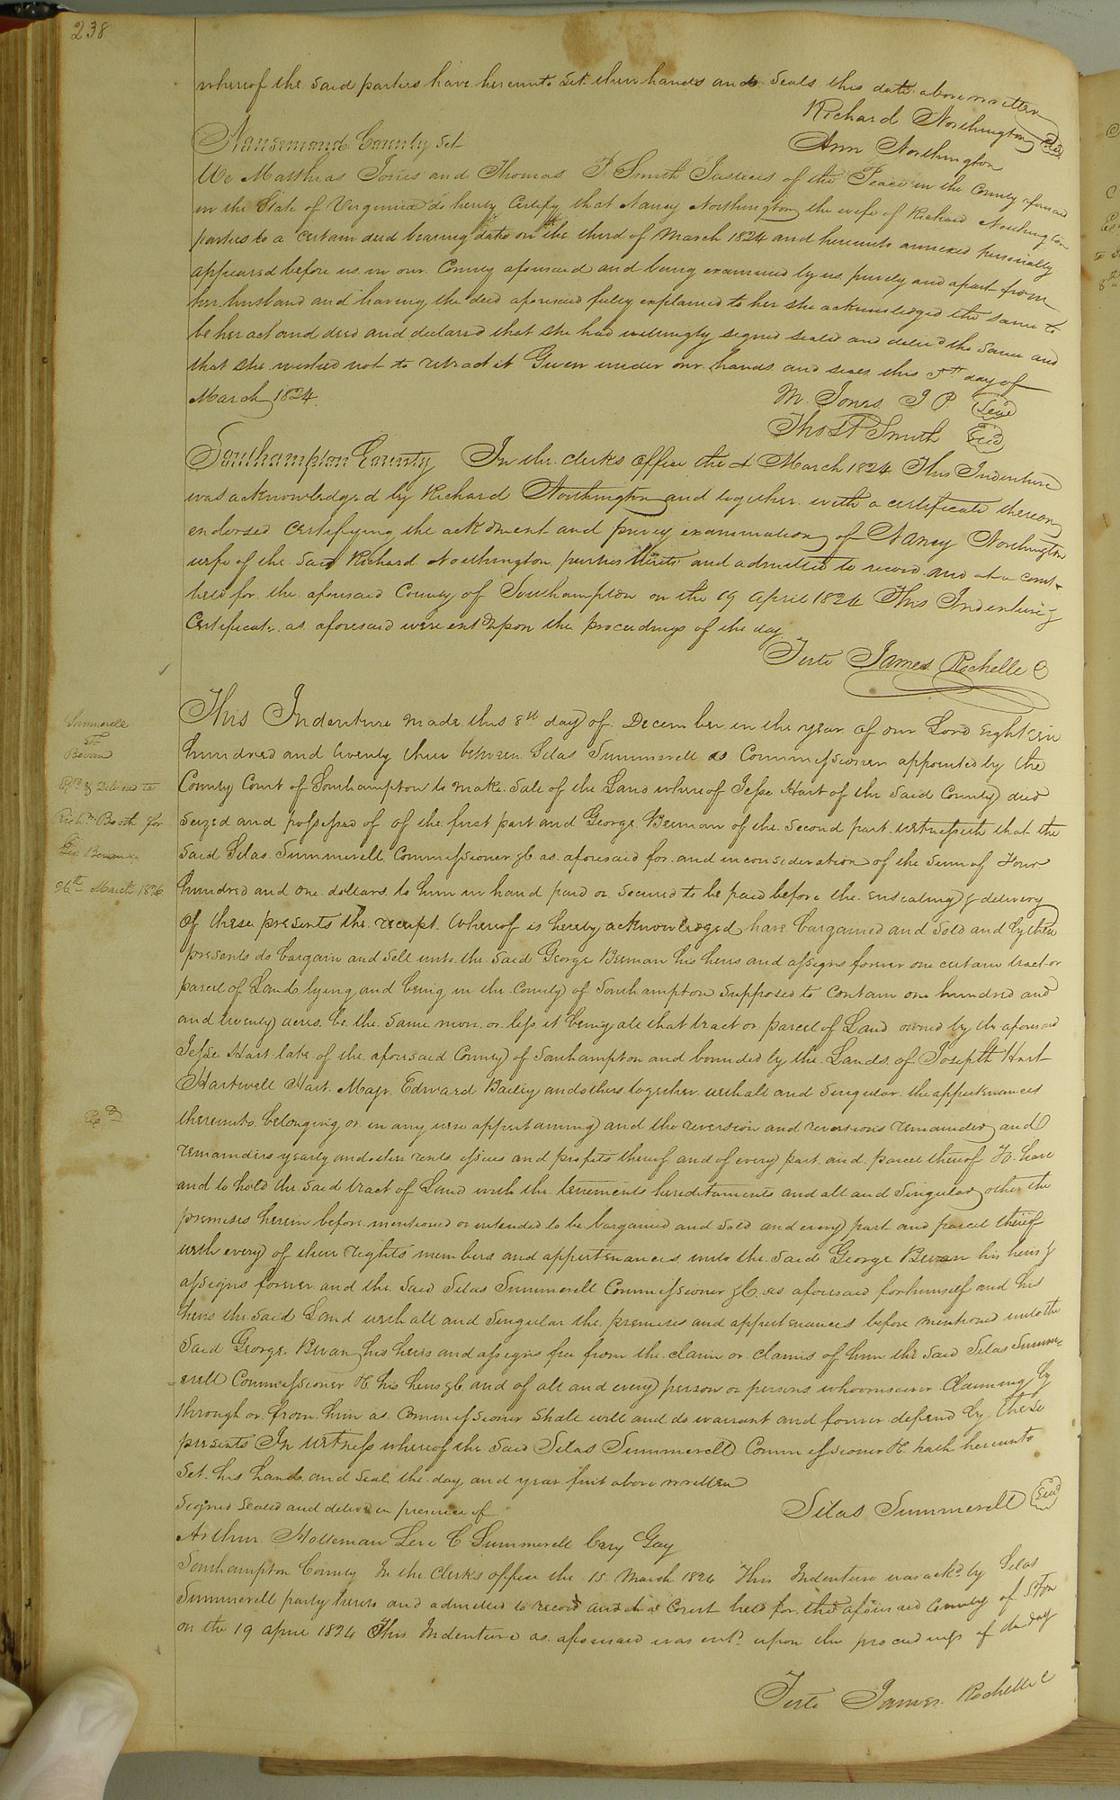 238
whereof the said parties have hereunto set their hands and seals this date above written
Richard Northington Seal
Ann Northington
Nansemond County Set
We Matthias Jones and Thomas P Smith Justices of the Peace in the County aforesaid
in the State of Virginia do hereby Certify that Nancy Northington the wife of Richard Northington
parties to a certain deed bearing date on the third of March 1824 and hereunto annexed personally
appeared before us in our County aforesaid and being examined by us privily and apart from
her husband and having the deed aforesaid fully explained to her she acknowledged the same to
be her act and deed and declared that she had willingly signed sealed and deliv'd the same and
that she wished not to retract it Given under our hands and seals this 5th day of
March 1824.
M. Jones J P Seal
Thos P Smith Seal
Southampton County In the clerks office the March 1824 This Indenture
was acknowledged by Richard Northington and together with a certificate thereon
endorsed certifying the ackdment and privy examination of Nancy Northington
wife of the said Richard Northington parties thereto and admitted to record and at a court
held for the aforesaid County of Southampton on the 19 April 1824 This Indenture &
Certificate as aforesaid were ent upon the proceedings of the day
Teste James Rochelle C
Summerell
To
Bevan
& Delivered to
Rich'd Booth for
Geo Bevan
26th March 1826
This Indenture made this 8th day of December in the year of our Lord eighteen
hundred and twenty three between Silas Summerell as Commissioner appointed by the
County Court of Southampton to make sale of the Land whereof Jesse Hart of the said County died
seized and possessed of of the first part and George Bevan of the second part witnesseth that the
said Silas Summerell Commissioner &c as aforesaid for and in consideration of the sum of Four
hundred and one dollars to him in hand paid or secured to be paid before the ensealing & delivery
of these presents the receipt whereof is hereby acknowledged have bargained and sold and by these
presents do bargain and sell unto the said George Bevan his heirs and assigns forever one certain tract or
parcel of Land lying and being in the County of Southampton supposed to contain one hundred and
and twenty acres be the same more or less it being all that tract or parcel of Land owned by the aforesaid
Jesse Hart late of the aforesaid County of Southampton and bounded by the Lands of Joseph Hart
Hartwell Hart Majr Edward Bailey and others together with all and singular the appurtenances
thereunto belonging or in any wise appertaining and the reversion and reversions remainder and
remainders yearly and other rents issues and profits thereof and of every part and parcel thereof To have
and to hold the said tract of Land with the tenements hereditaments and all and singular other the
premises herein before mentioned or intended to be bargained and sold and every part and parcel thereof
with every of their rights members and appurtenances unto the said George Bevan his heirs &
assigns forever and the said Silas Summerell Commissioner &c as aforesaid for himself and his
heirs the said Land with all and singular the premises and appurtenances before mentioned unto the
said George Bevan his heirs and assigns free from the claim or claims of him the said Silas Summe-
rell Commissioner &c his heirs &c and of all and every person or persons whoomsoever claiming by
through or from him as Commissioner shall will and do warrant and forever defend by these
presents In witness whereof the said Silas Summerell Commissioner &c hath hereunto
set his hand and seal the day and year first above written
Silas Summerell Seal
Signed sealed and deliver'd in presence of
Arthur Holleman Levi C Summerell Cary Gay
Southampton County In the Clerks office the 15 March 1824 This Indenture was ackd by Silas
Summerell party hereto and admitted to record and at a Court held for the aforesaid County of
on the 19 April 1824 This Indenture as aforesaid was entd upon the proceedings of the day
Teste James Rochelle C